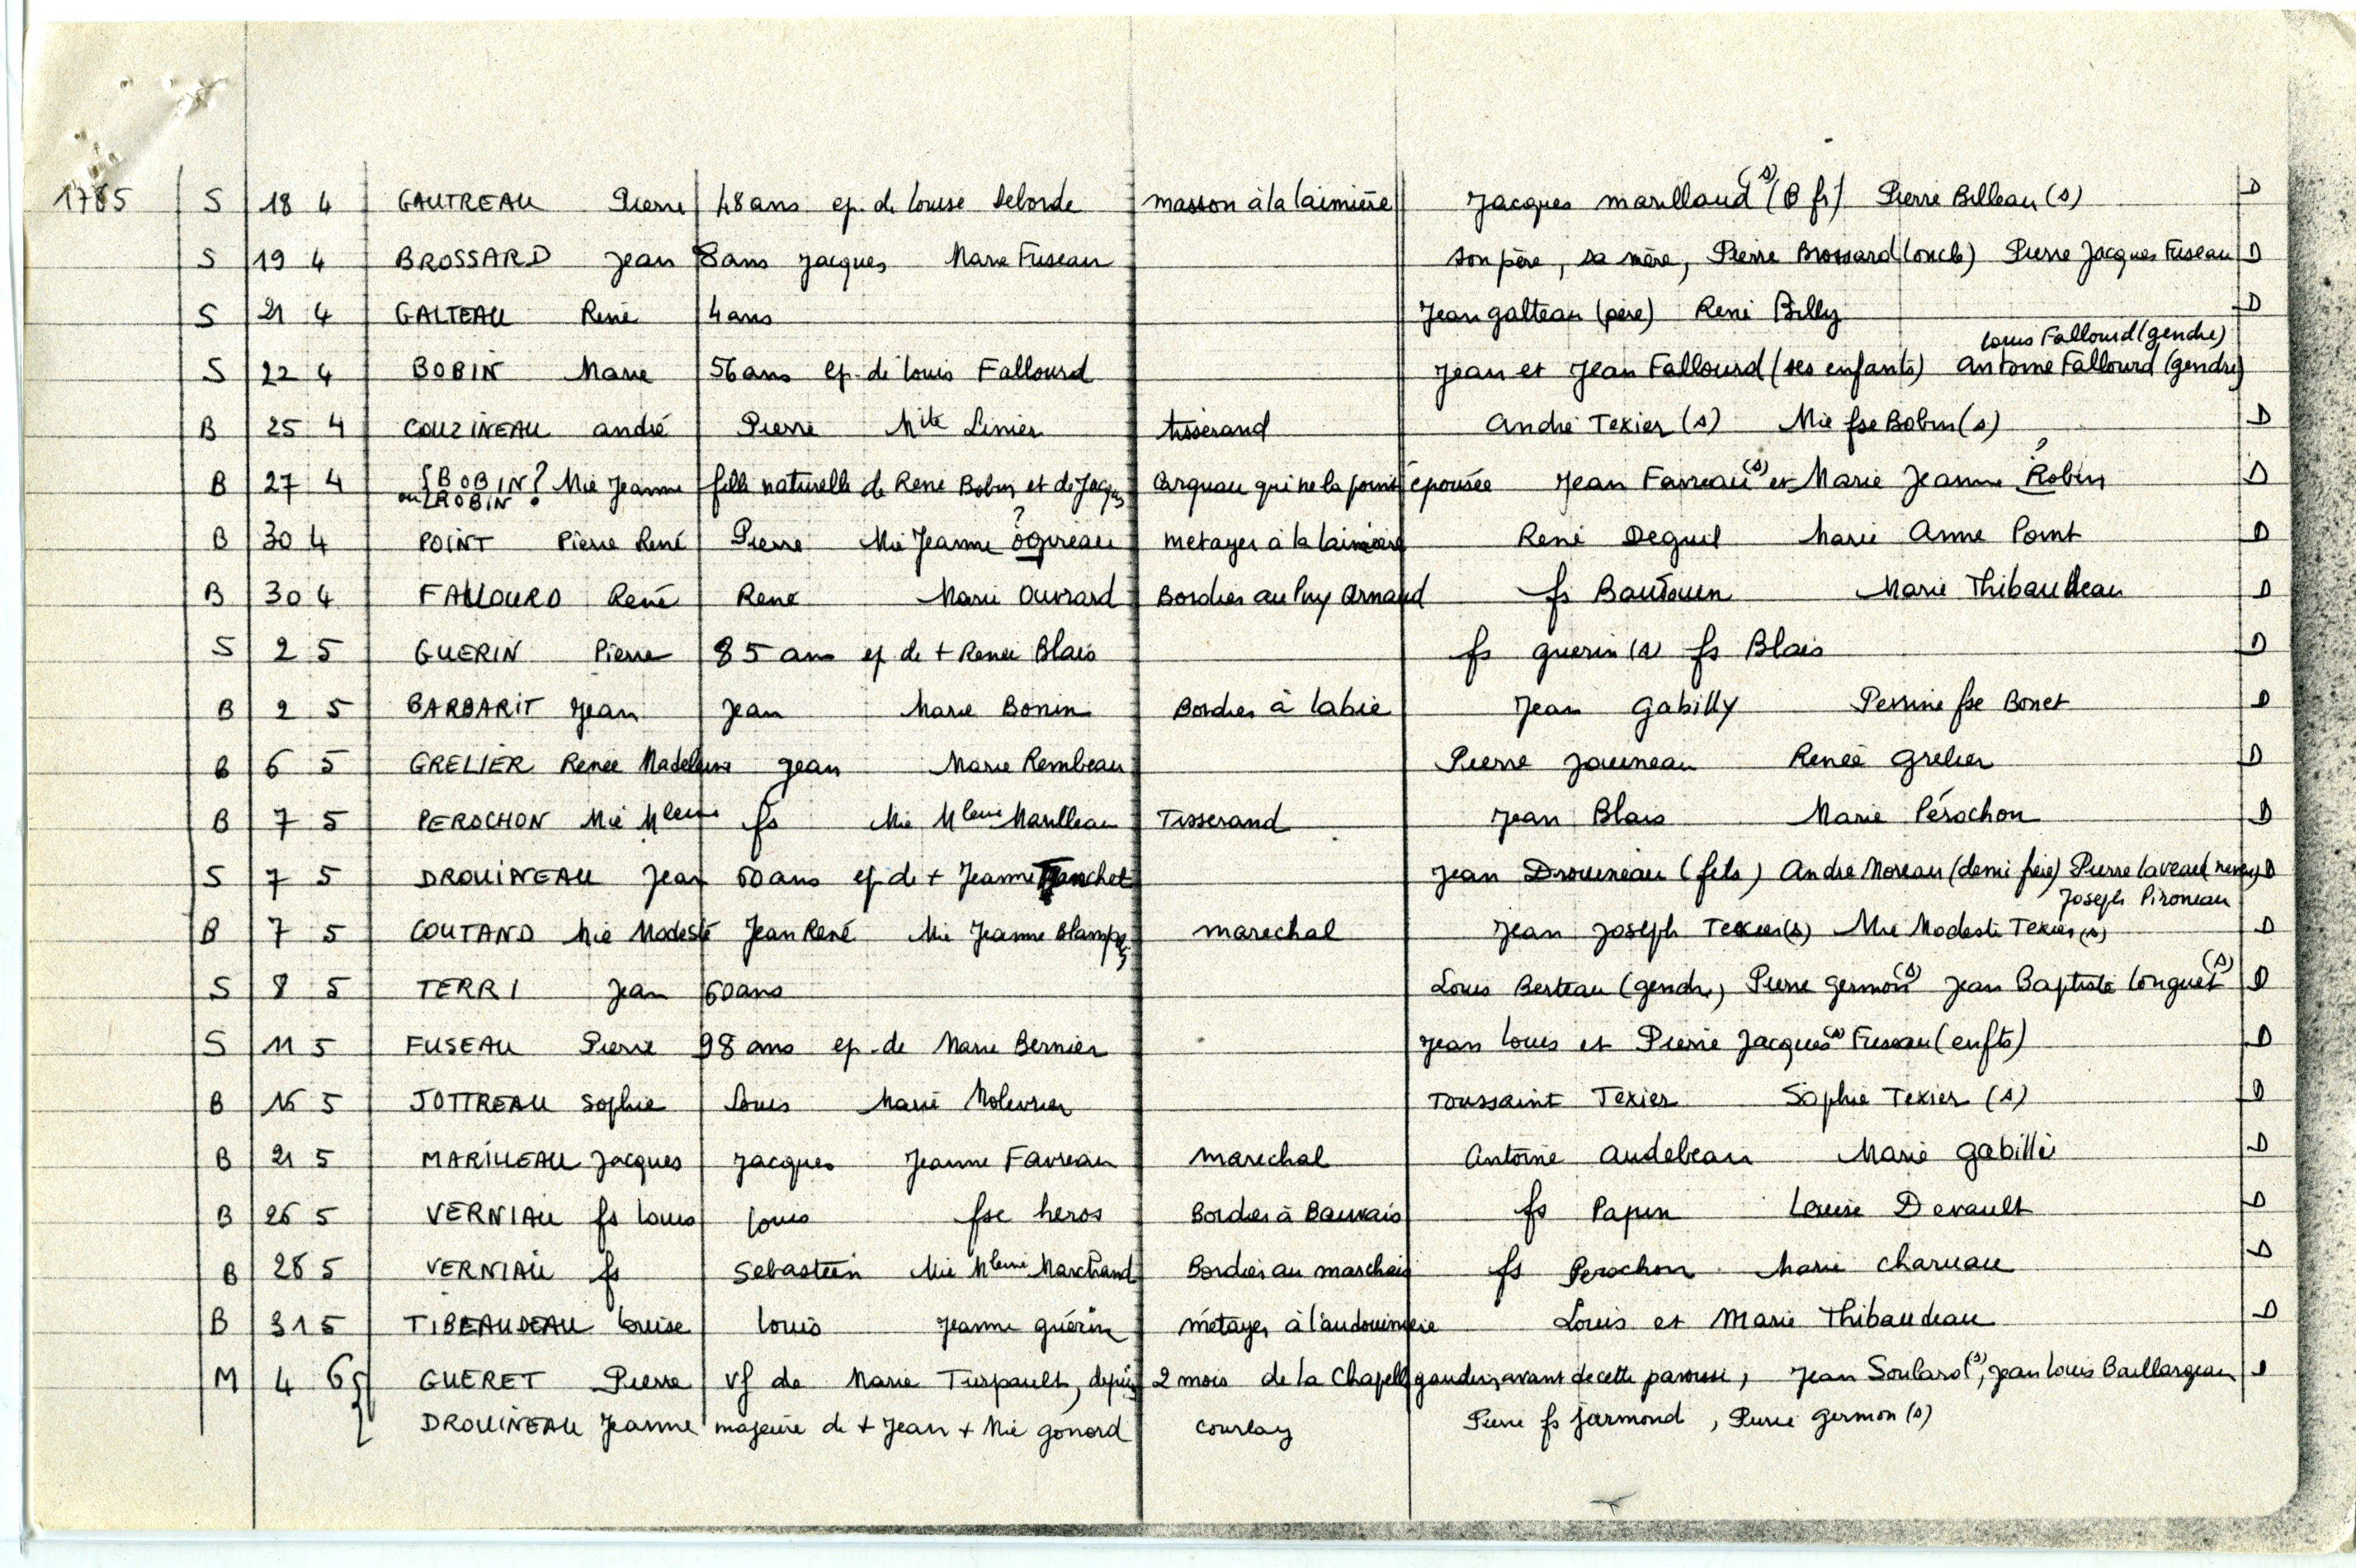 1785 S 18 4 GAUTREAU Pierre 48 ans ep. de Louise Deborde masson à la laimière Jacques marillaud (s) (B fr) Pierre Billeau (s) D
S 19 4 BROSSARD Jean 8 ans Jacques, Marie Fuseau son père, sa mère, Pierre Brossard (oncle) Pierre Jacques Fuseau D
S 21 4 GALTEAU René 4 ans Jean galteau (père) René Billy D
Louis Fallourd (gendre)
S 22 4 BOBIN Marie 56 ans ep. de louis Fallourd Jean et Jean Fallourd (ses enfants) Antoine Fallourd (gendre)
B 25 4 COUZINEAU andré Pierre Mite Linier tisserand André Texier (s) Mie fse Bobin (s) D
B 27 4 {BOBIN? Mie Jeanne fille naturelle de René Bobin et de Jacques Carguau qui ne la point épousée Jean Favreau (s) et Marie Jeanne Robin ? D
ou {ROBIN?
B 30 4 POINT Pierre René Pierre Mie Jeanne ogireau ? metayer à la laimière René Deguil Marie Anne Point D
B 30 4 FALLOURD René René Marie Ouvrard Bordier au Puy Arnaud fs Baudouin Marie Thibaudeau D
S 2 5 GUERIN Pierre 85 ans ep de + Renée Blais fs guerin (s) fs Blais D
B 2 5 BARBARIT Jean Jean Marie Bonin Bordier à labie Jean Gabilly Perrine fse Bonet D
B 6 5 GRELIER Renée Madeleine Jean Marie Rembeau Pierre Jouineau Renée Grelier D
B 7 5 PEROCHON Mie Mleine fs Mie Mleine Maulleau Tisserand Jean Blais Marie Pérochon D
S 7 5 DROUINEAU Jean 60 ans ep. de + Jeanne Fanchet Jean Drouineau (fils) André Moreau (demi frère) Pierre laveau (neveu) D
Joseph Pironeau
B 7 5 COUTAND Mie Modeste Jean René Mie Jeanne marechal Jean Joseph Texier (s) Mie Modeste Texier (s) D
S 8 5 TERRI Jean 60 ans Louis Berteau (gendre) Pierre germon (s) Jean Baptiste longuet (s) D
S 11 5 FUSEAU Pierre 98 ans ep. de Marie Bernier Jean louis et Pierre Jacques (s) Fuseau (enfts) D
B 16 5 JOTTREAU Sophie Louis Marie Molevrier Toussaint Texier Sophie Texier (s) D
B 21 5 MARILLEAU Jacques Jacques Jeanne Favreau marechal Antoine audebeau Marie gabillé D
B 26 5 VERNIAU fs louis louis fse heros Bordier à Bauvais fs Papin Louise Devault D
B 28 5 VERNIAU fs Sebastien Mie Mleine Marchand Bordier au marchais fs Perochon Marie charuau D
B 31 5 TIBEAUDEAU louise louis Jeanne guérin métayer à l'audouinière Louis et Marie Thibaudeau D
M 4 6 { GUERET Pierre vf de Marie Turpault, depuis 2 mois de la Chapelle gaudin, avant de cette paroisse, Jean Soulard (s), Jean louis Baillargeau D
DROUINEAU Jeanne majeure de + Jean + Mie gonord courlay Pierre fs jarmond, Pierre germon (s)